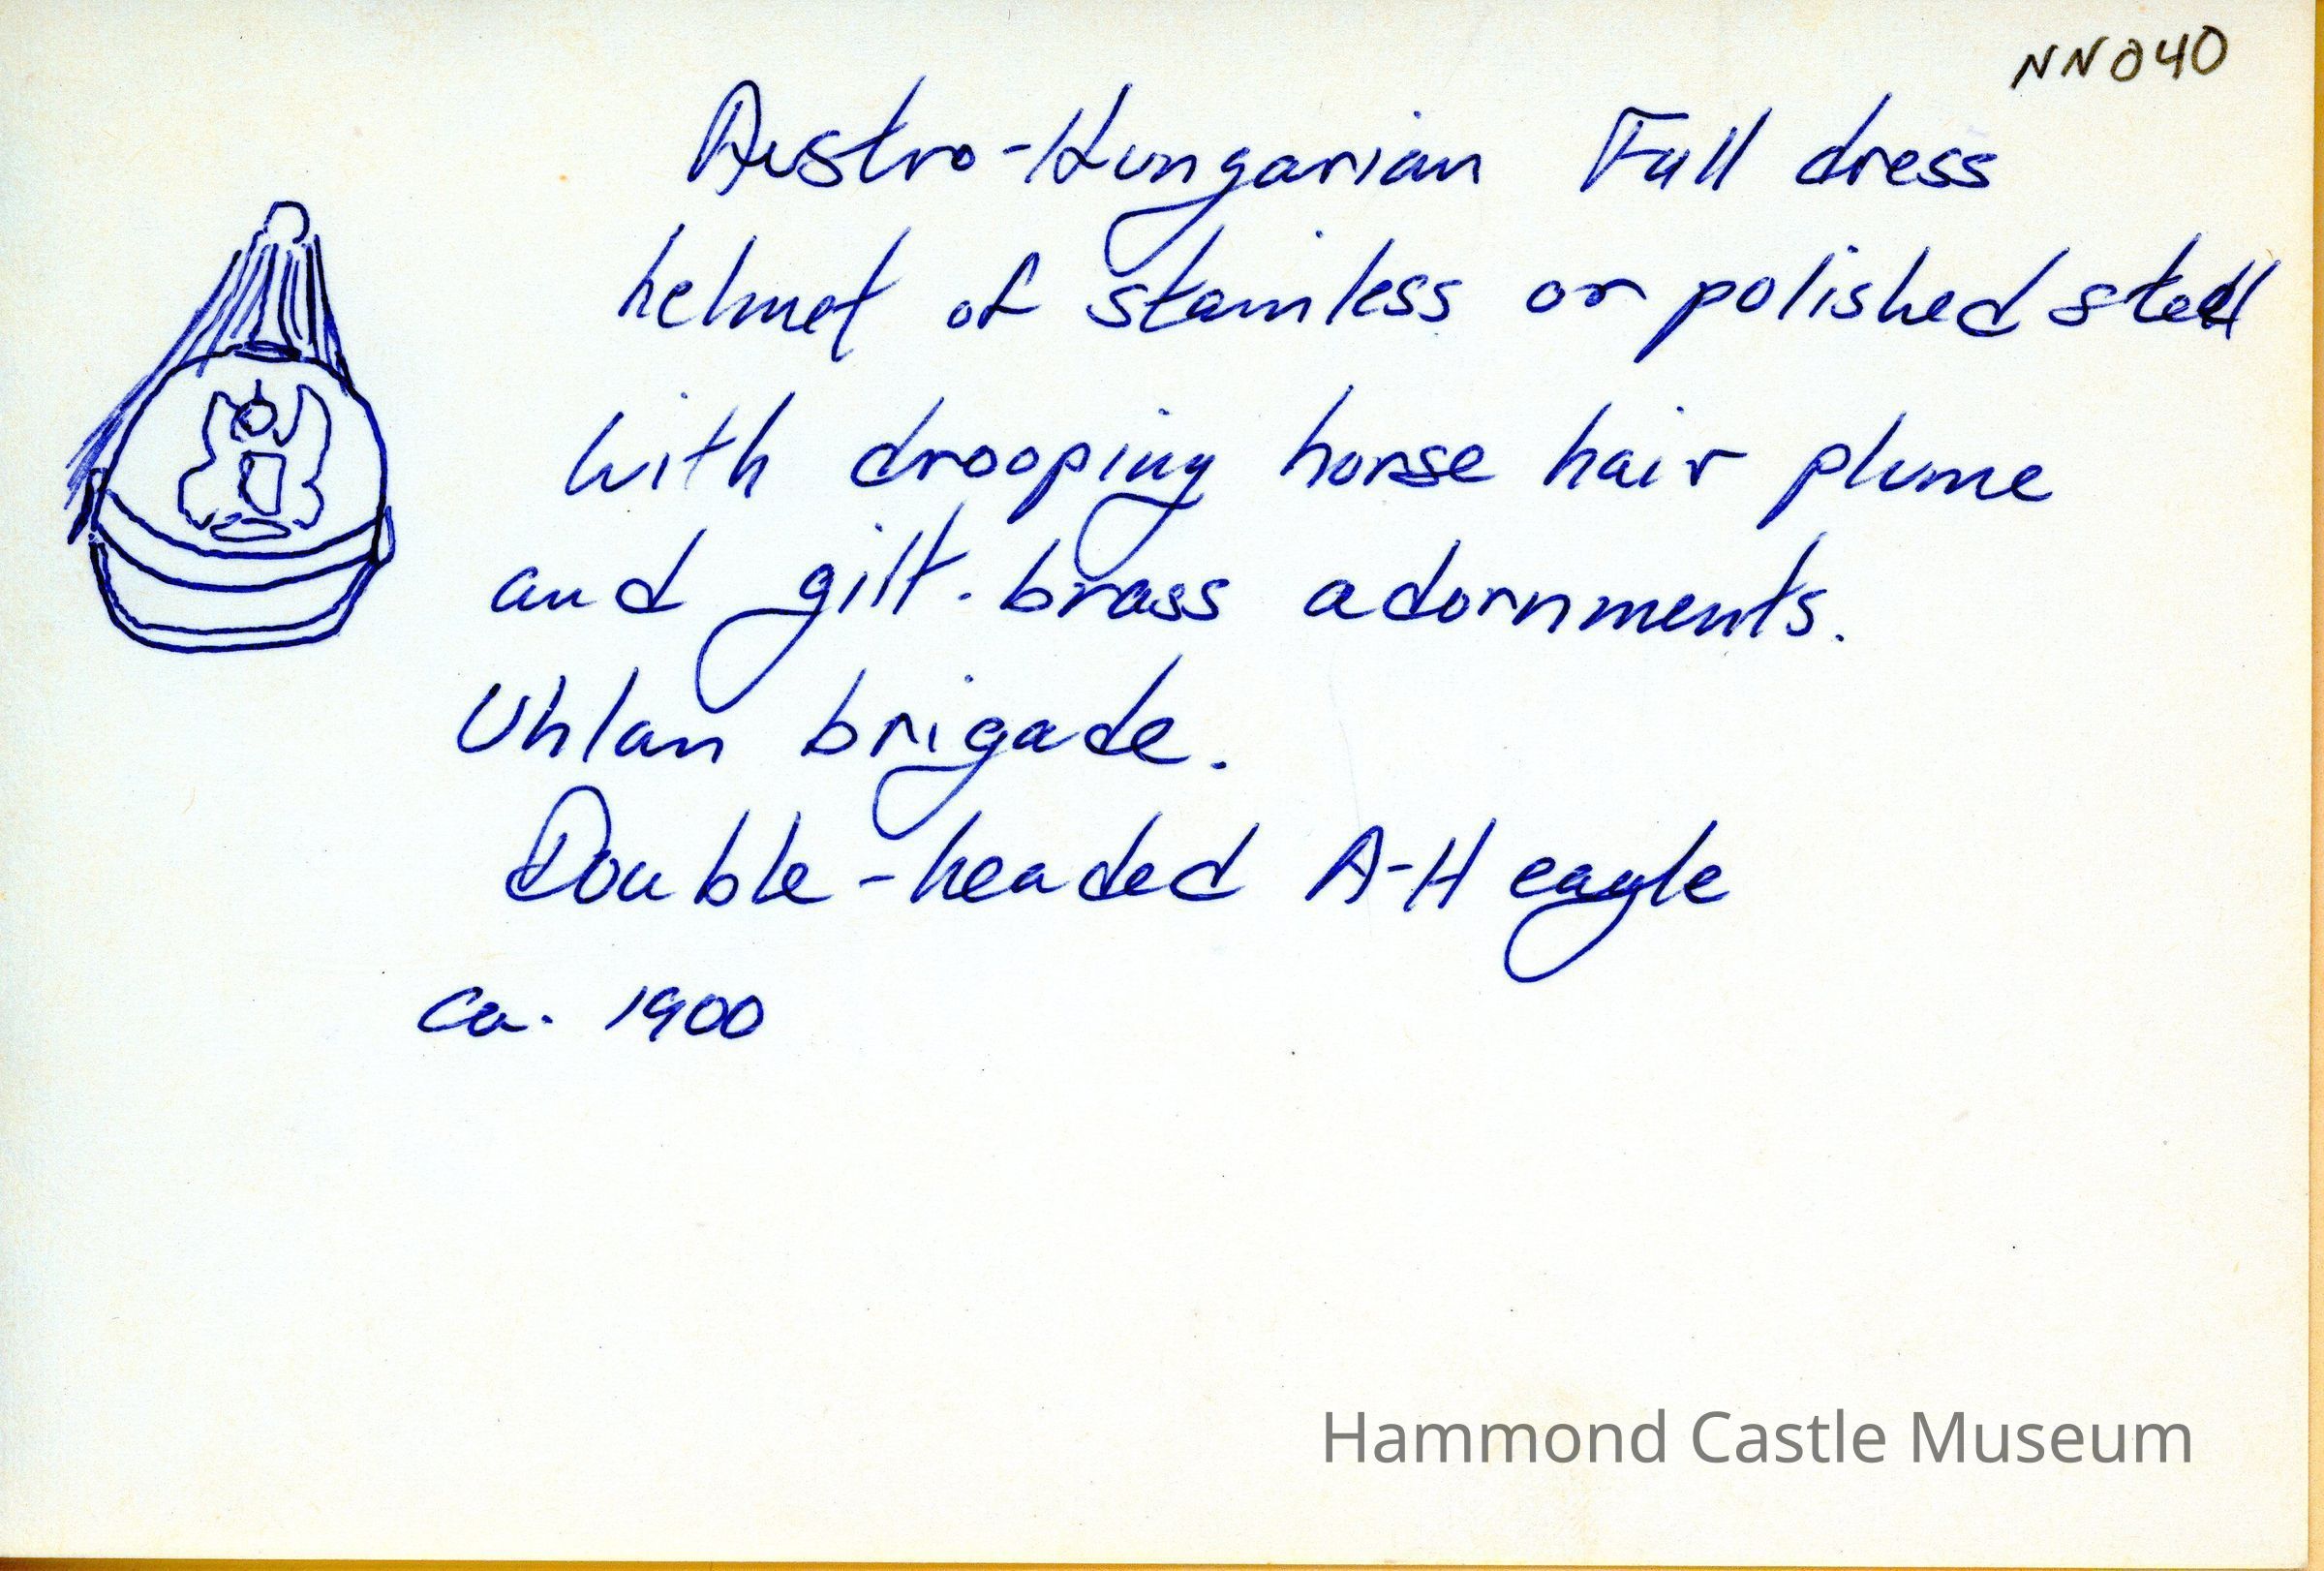 NN040
Austro-Hungarian Full dress
helmet of stainless or polished steel
with drooping horse hair plume
and gilt-brass adornments.
Uhlan brigade.
Double-headed A-H eagle
ca. 1900
Hammond Castle Museum